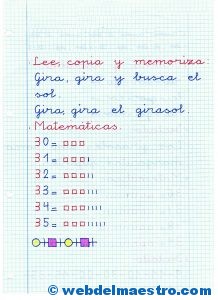 Lee, copia y memoriza:
Gira, gira y busca el
sol.
Gira, gira el girasol.
Matemáticas.
30=
31=
32=
33=
34=
35=
© webdelmaestro.com